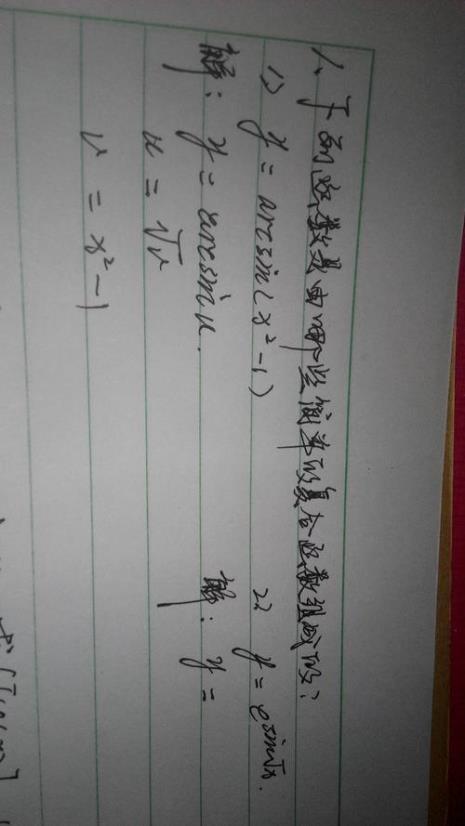 1、下列函数是由哪些简单的复合函数组成的:
1) y = arcsin(x²-1)
2) y = e^sin√x.
解: y = arcsin u.
u = √v
v = x²-1
解: y =